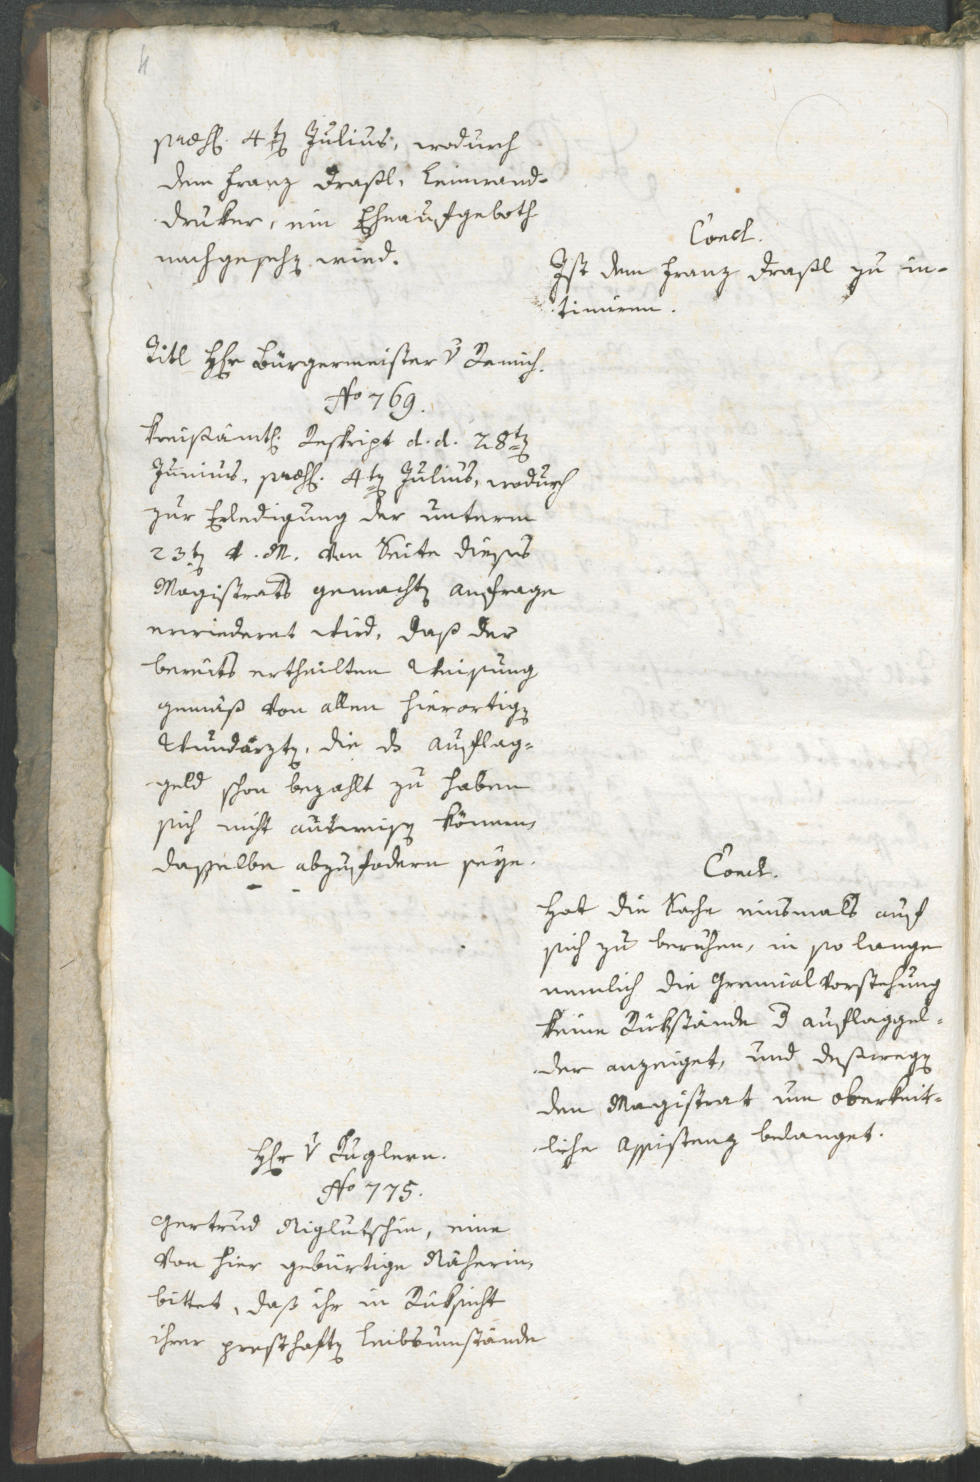 4
præs. 4tn Julius, wodurch
dem Franz Draßl, Leinwand-
druker, ein Eheaufgeboth
nachgesehn wird.
Concl.
Ist dem Franz Draßl zu in-
timiren.
Titl Hhr Bürgermeister v Remich.
No 769.
Kreißämtl. Reskript d. d. 28tn
Junius, præs. 4tn Julius, wodurch
zur Erledigung der unterm
23tn d. M. von Seite dieses
Magistrats gemachtn Anfrage
erwiederet wird, daß der
bereits ertheilten Weisung
gemäß von allen hierortign
Wundärztn, die ds Auflag-
geld schon bezahlt zu haben
sich nicht ausweisn können,
dasselbe abzufodern seye.
Concl.
Hat die Sache einsmals auf
sich zu beruhen, in so lange
nemlich die Gremialvorstehung
keine Rükstände d Auflaggel-
der anzeiget, und deßwegn
den Magistrat um oberkeit-
liche Assistenz belanget.
Hhr v Kuglern.
No 775.
Gertrud Riglutschin, eine
von hier gebürtige Näherin,
bittet, daß ihr in Rüksicht
ihrer presthaftn Leibsumstände